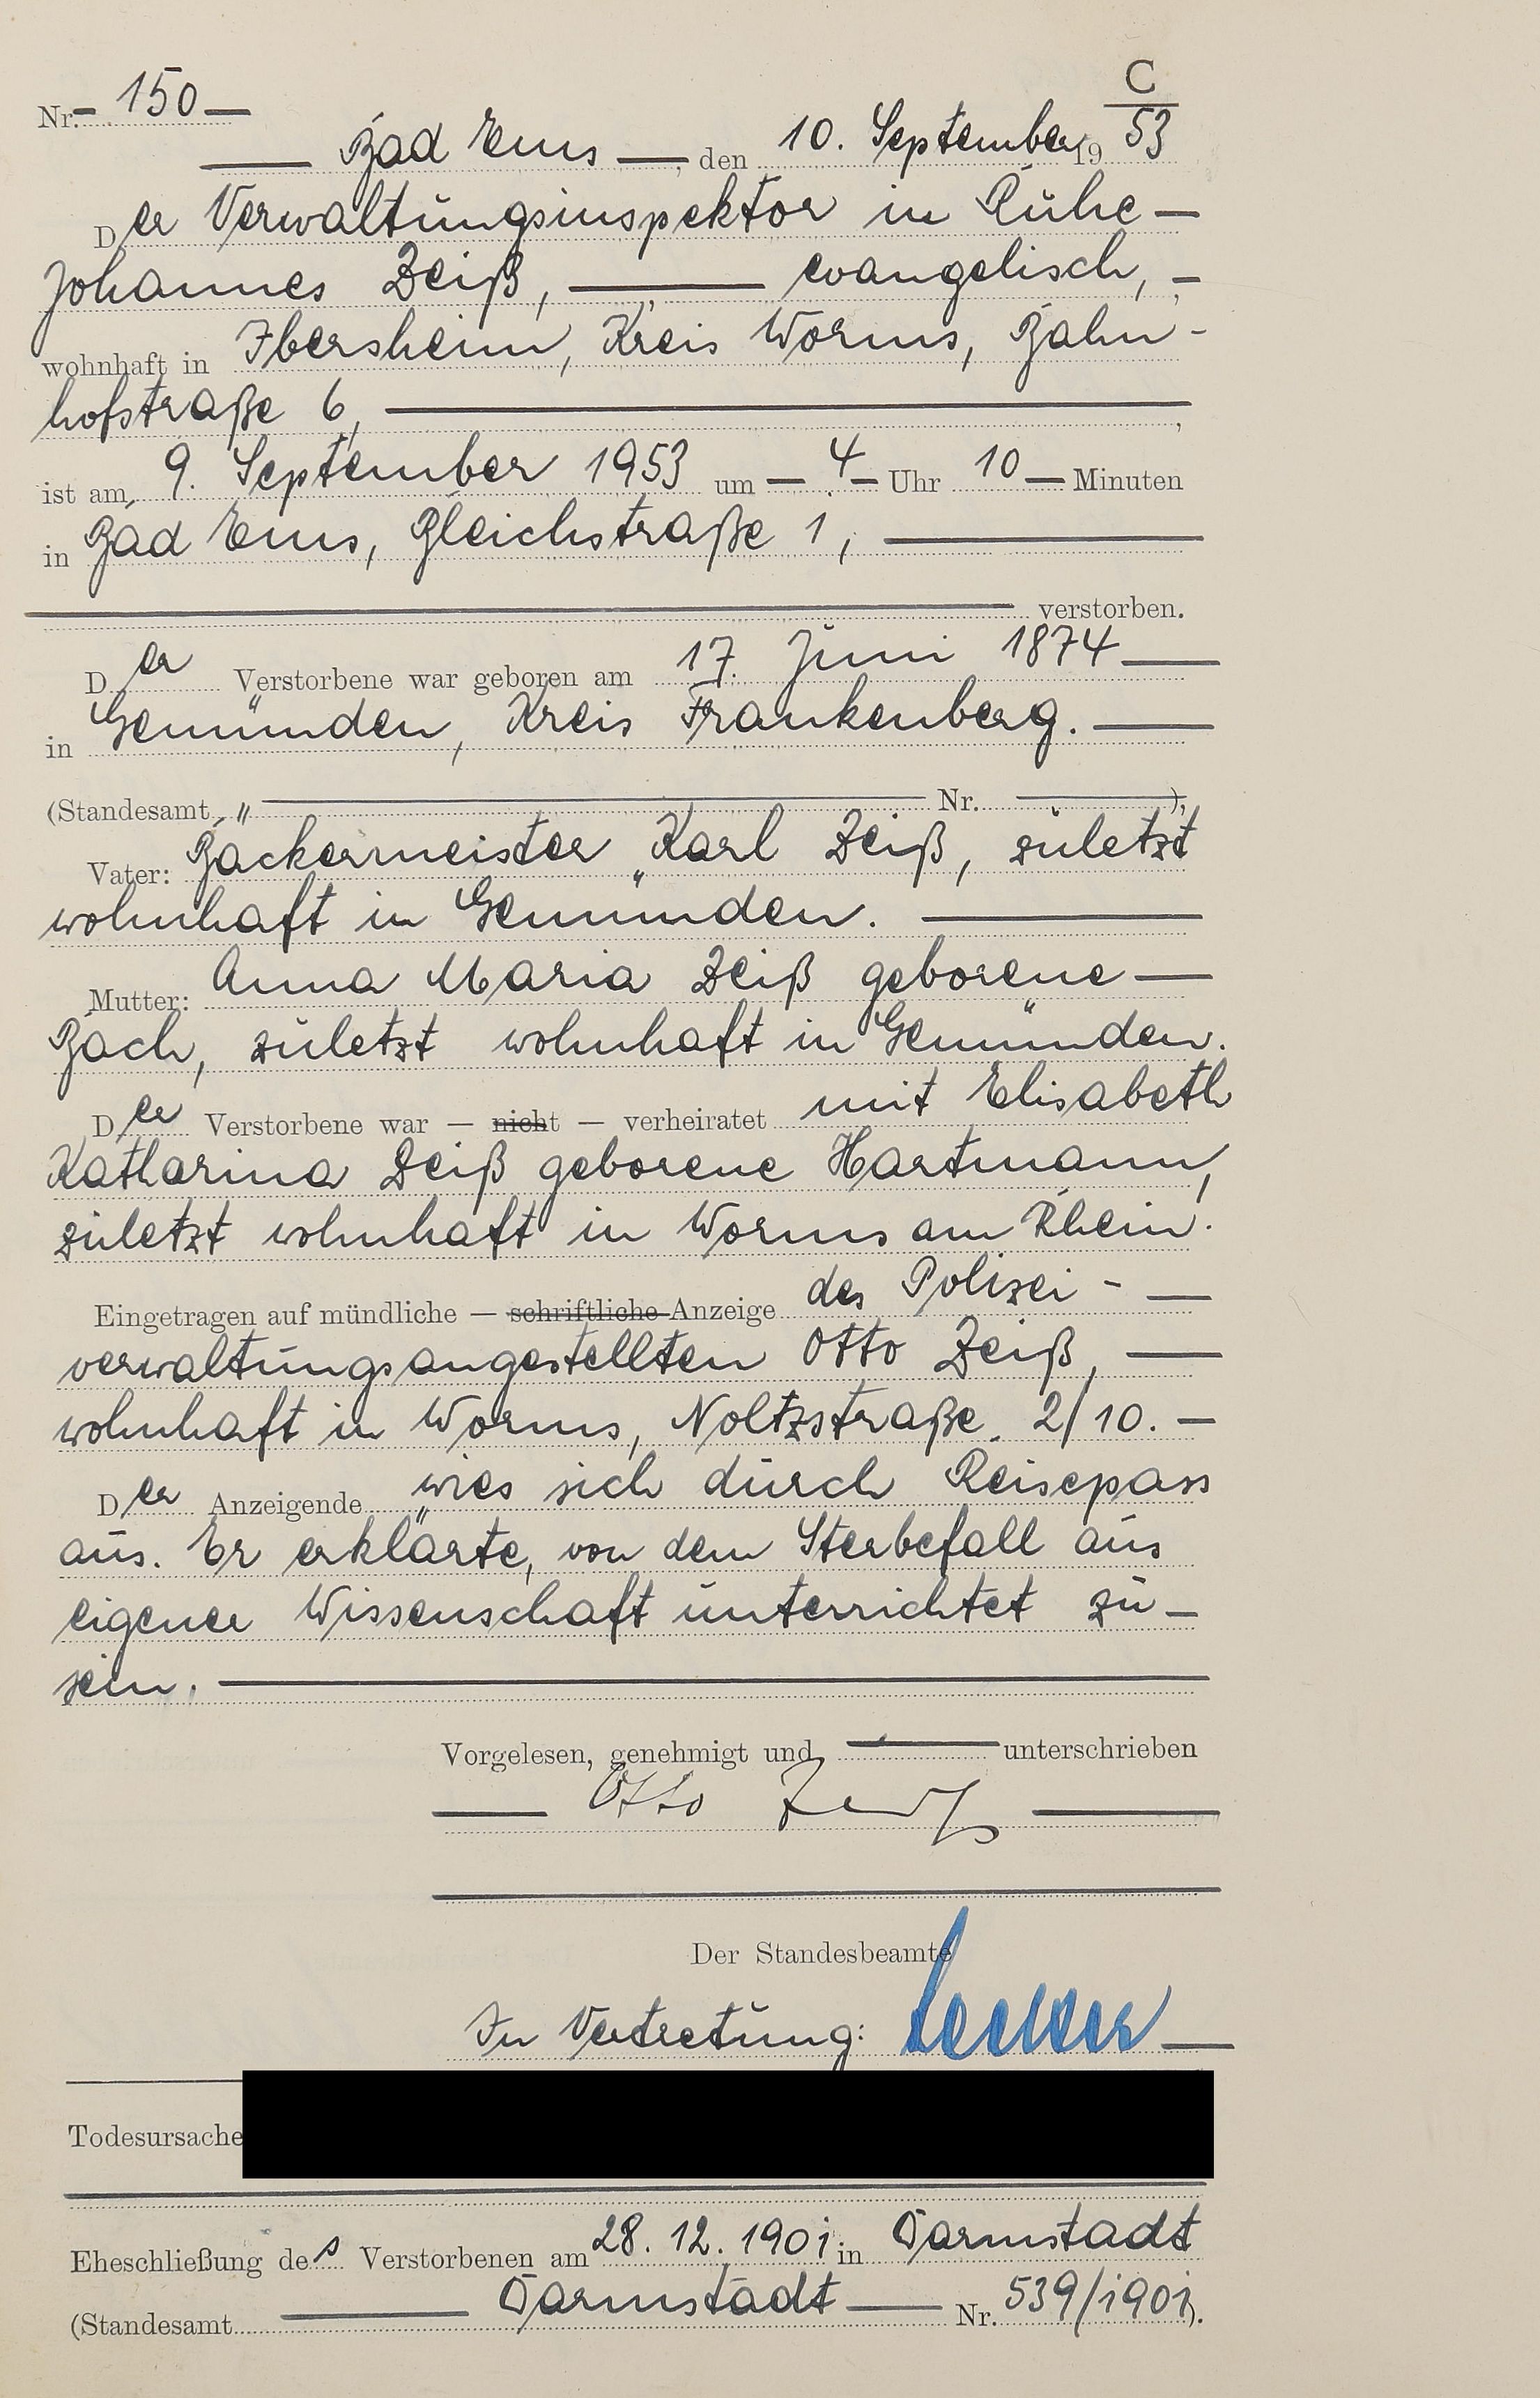 C
Nr. - 150 -
Bad Ems, den 10. September 1953
Der Verwaltungsinspektor in Ruhe
Johannes Zeiß, evangelisch,
wohnhaft in Ibersheim, Kreis Worms, Bahn-
hofstraße 6,
ist am 9. September 1953 um 4 Uhr 10 Minuten
in Bad Ems, Bleichstraße 1,
verstorben.
Der Verstorbene war geboren am 17. Juni 1874
in Gemünden, Kreis Frankenberg.
(Standesamt " Nr. ),
Vater: Bäckermeister Karl Zeiß, zuletzt
wohnhaft in Gemünden.
Mutter: Anna Maria Zeiß geborene
Bach, zuletzt wohnhaft in Gemünden.
Der Verstorbene war — nicht — verheiratet mit Elisabeth
Katharina Zeiß geborene Hartmann,
zuletzt wohnhaft in Worms am Rhein.
Eingetragen auf mündliche — schriftliche Anzeige des Polizei-
verwaltungsangestellten Otto Zeiß,
wohnhaft in Worms, Noltzstraße 2/10.
Der Anzeigende wies sich durch Reisepass
aus. Er erklärte, von dem Sterbefall aus
eigener Wissenschaft unterrichtet zu
sein.
Vorgelesen, genehmigt und unterschrieben
Otto Zeiß
Der Standesbeamte
In Vertretung:
Todesursache
Eheschließung des Verstorbenen am 28.12.1901 in Darmstadt
(Standesamt Darmstadt Nr. 539/1901).